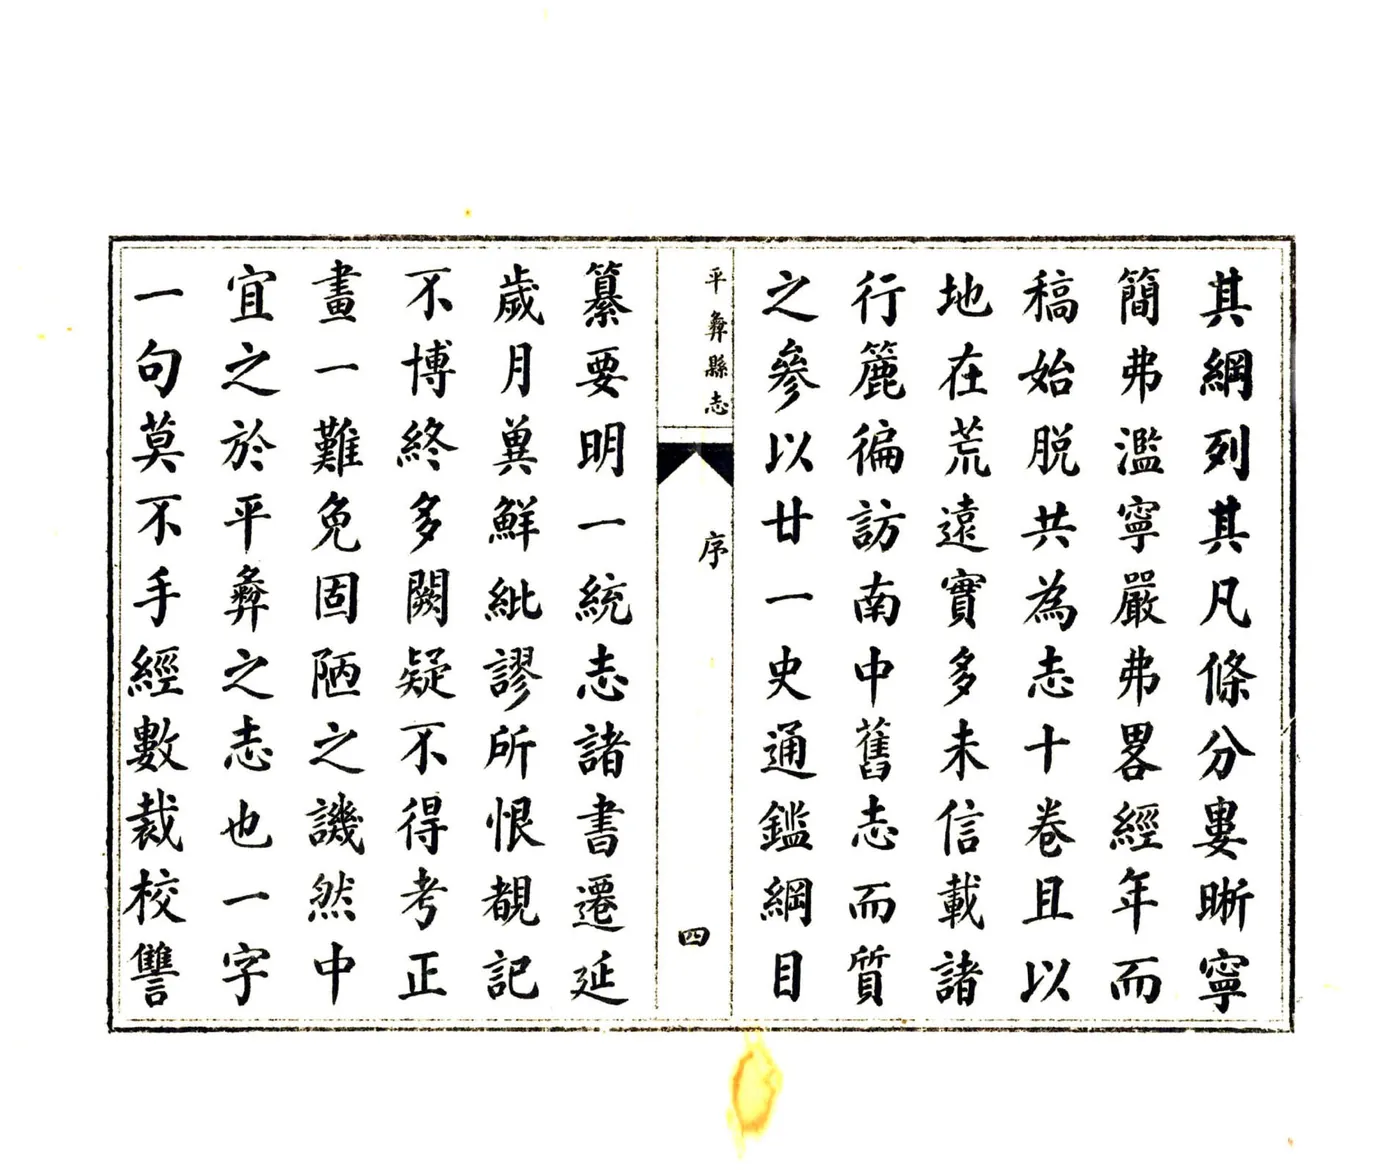 其綱列其凡條分婁晰寧
簡弗濫寧嚴弗畧經年而
稿始脱共為志十卷且以
地在荒遠實多未信載諸
行簏徧訪南中舊志而質
之參以廿一史通鑑綱目
平彝縣志
序
四
纂要明一統志諸書遷延
歲月冀鮮紕謬所恨覩記
不博終多闕疑不得考正
畫一難免固陋之譏然中
宜之於平彝之志也一字
一句莫不手經數裁校讐